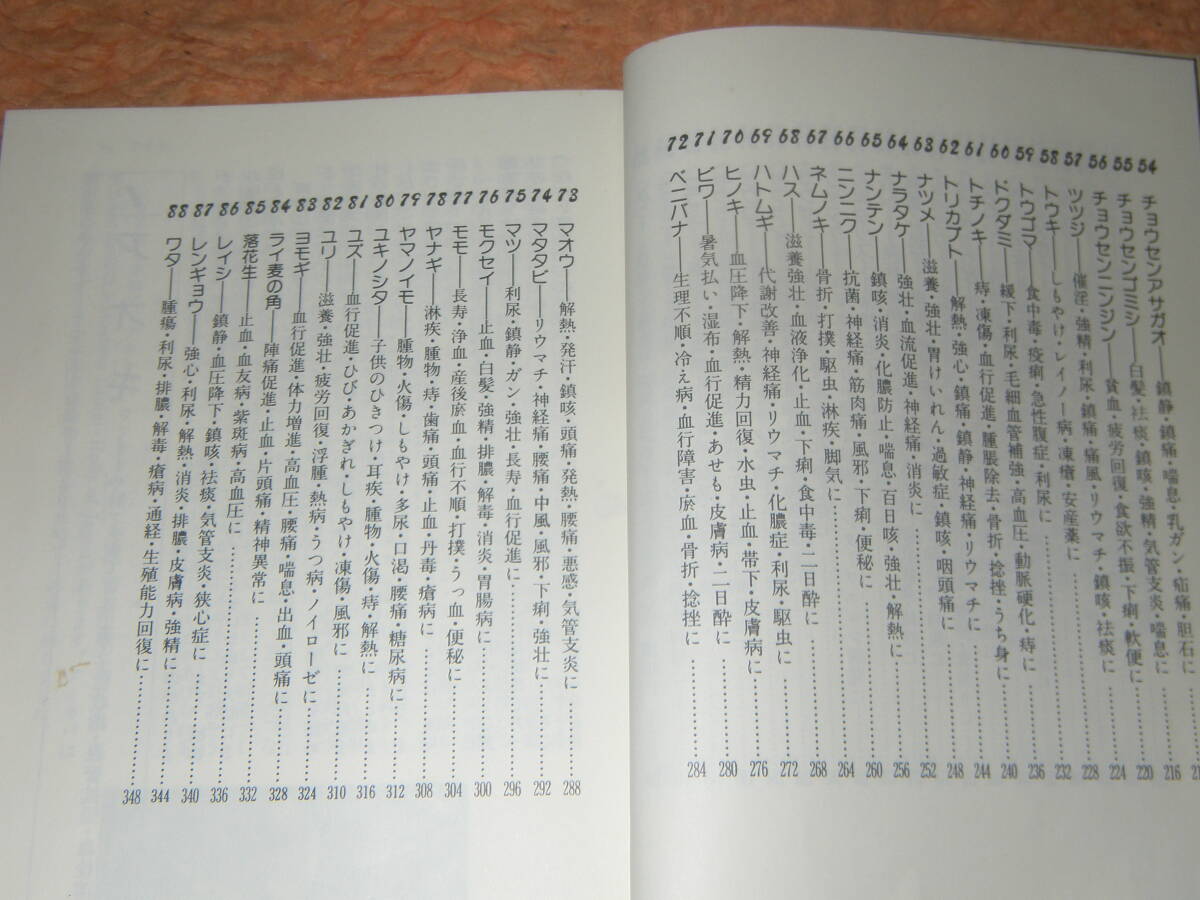 54 チョウセンアサガオ──鎮静・鎮痛・喘息・乳ガン・疝痛・胆石に
55 チョウセンゴミシ──白髪・祛痰・鎮咳・強精・気管支炎・喘息に…………216
56 チョウセンニンジン──貧血・疲労回復・食欲不振・下痢・軟便に…………220
57 ツツジ──催淫・強精・利尿・鎮痛・痛風・リウマチ・鎮咳・祛痰に…………224
58 トウキ──しもやけ・レイノー病・凍瘡・安産薬に…………228
59 トウゴマ──食中毒・疫痢・急性腹症・利尿に…………232
60 ドクダミ──緩下・利尿・毛細血管補強・高血圧・動脈硬化・痔に…………236
61 トチノキ──痔・凍傷・血行促進・腫脹除去・骨折・捻挫・うち身に…………240
62 トリカブト──解熱・強心・鎮痛・鎮静・神経痛・リウマチに…………244
63 ナツメ──滋養・強壮・胃けいれん・過敏症・鎮咳・咽頭痛に…………248
64 ナラタケ──強壮・血流促進・神経痛・消炎に…………252
65 ナンテン──鎮咳・消炎・化膿防止・喘息・百日咳・強壮・解熱に…………256
66 ニンニク──抗菌・神経痛・筋肉痛・風邪・下痢・便秘に…………260
67 ネムノキ──骨折・打撲・駆虫・淋疾・脚気に…………264
68 ハス──滋養強壮・血液浄化・止血・下痢・食中毒・二日酔に…………268
69 ハトムギ──代謝改善・神経痛・リウマチ・化膿症・利尿・駆虫に…………272
70 ヒノキ──血圧降下・解熱・精力回復・水虫・止血・帯下・皮膚病に…………276
71 ビワ──暑気払い・湿布・血行促進・あせも・皮膚病・二日酔に…………280
72 ベニバナ──生理不順・冷え病・血行障害・瘀血・骨折・捻挫に…………284
73 マオウ──解熱・発汗・鎮咳・頭痛・発熱・腰痛・悪感・気管支炎に…………288
74 マタタビ──リウマチ・神経痛・腰痛・中風・風邪・下痢・強壮に…………292
75 マツ──利尿・鎮静・ガン・強壮・長寿・血行促進に…………296
76 モクセイ──止血・白髪・強精・排膿・解毒・消炎・胃腸病に…………300
77 モモ──長寿・浄血・産後瘀血・血行不順・打撲・うっ血・便秘に…………304
78 ヤナギ──淋疾・腫物・痔・歯痛・頭痛・止血・丹毒・瘡病に…………308
79 ヤマノイモ──腫物・火傷・しもやけ・多尿・口渇・腰痛・糖尿病に…………312
80 ユキノシタ──子供のひきつけ・耳疾・腫物・火傷・痔・解熱に…………316
81 ユズ──血行促進・ひび・あかぎれ・しもやけ・凍傷・風邪に…………310
82 ユリ──滋養・強壮・疲労回復・浮腫・熱病・うつ病・ノイローゼに…………324
83 ヨモギ──血行促進・体力増進・高血圧・腰痛・喘息・出血・頭痛に…………328
84 ライ麦の角──陣痛促進・止血・片頭痛・精神異常に…………332
85 落花生──止血・血友病・紫斑病・高血圧に…………336
86 レイシ──鎮静・血圧降下・鎮咳・祛痰・気管支炎・狭心症に…………340
87 レンギョウ──強心・利尿・解熱・消炎・排膿・皮膚病・強精に…………344
88 ワタ──腫瘍・利尿・排膿・解毒・瘡病・通経・生殖能力回復に…………348